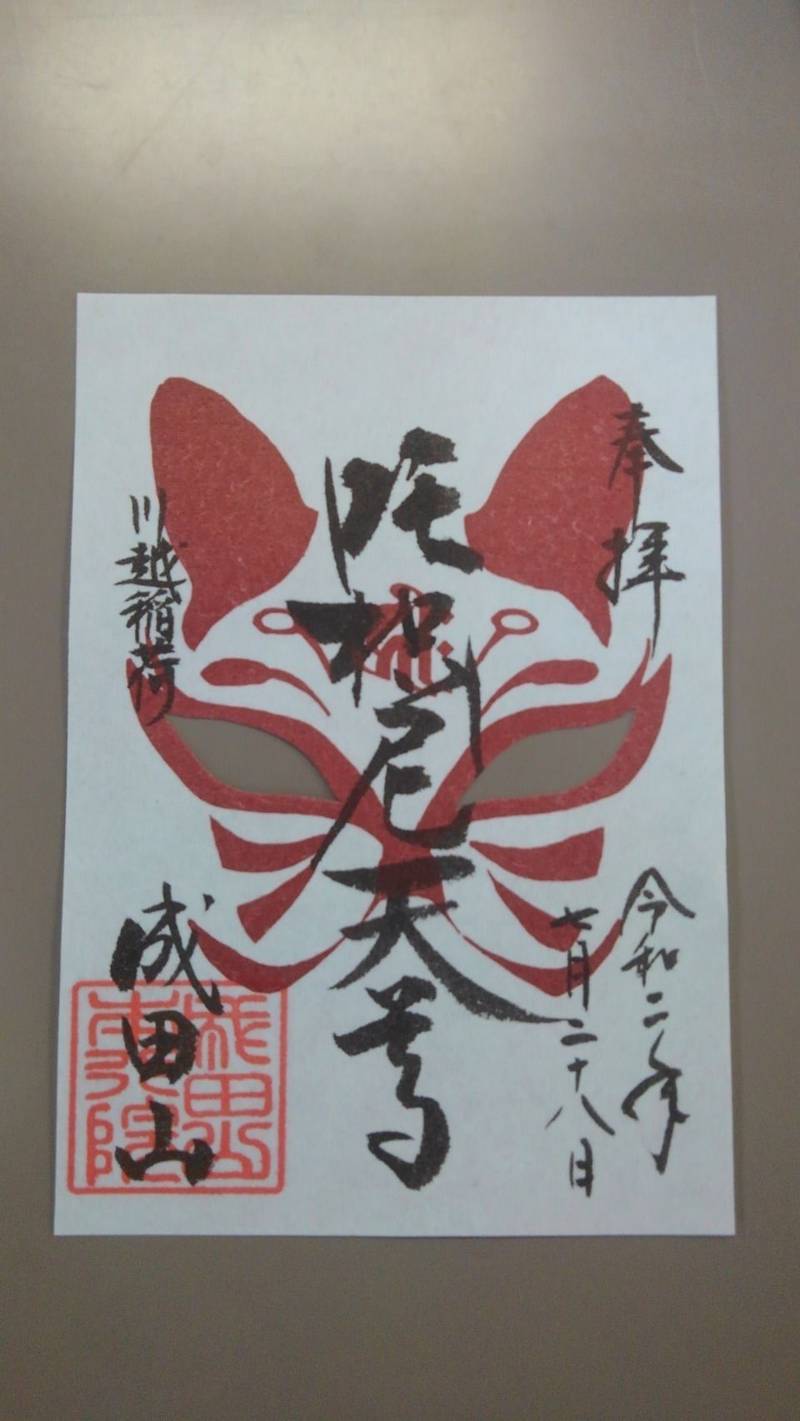 奉拝
令和二年
七月二十八日
吒枳尼天尊
川越稲荷
成田山